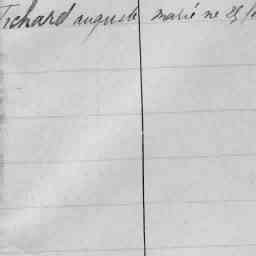 Richard auguste marié né 25